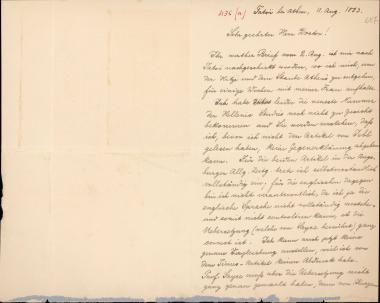 436 (a)
687
Tatoi bei Athen, 11. Aug. 1883.
Sehr geehrter Herr Doctor!
Ihr werther Brief vom 2. Aug. ist mir nach
Tatoi nachgeschickt worden, wo ich mich, um
der Hitze und dem Staube Athens zu entgehen,
für einige Wochen mit meiner Frau aufhalte.
Ich habe leider die neueste Nummer
der Hellenic Studies noch nicht zu Gesicht
bekommen und Sie werden verstehen, daß
ich, bevor ich nicht den Artikel von
gelesen haben, keine Gegenerklärung abgeben
kann. Für die beiden Artikel in der Augs-
burger Allg. Zeitg. bin ich selbstverständlich
vollständig, für die englischen dagegen
bin ich nicht verantwortlich, da ich ja die
englische Sprache nicht vollständig verstehe
und somit nicht controliren kann, ob die
Uebersetzung (welche von Sayce herrührt) ganz
correct ist. Ich kann auch jetzt keine
genaue Vergleichung anstellen, weil ich von
dem Times-Artikel keinen Abdruck habe.
Prof. Sayce muß aber die Uebersetzung nicht
ganz genau gemacht haben, denn von